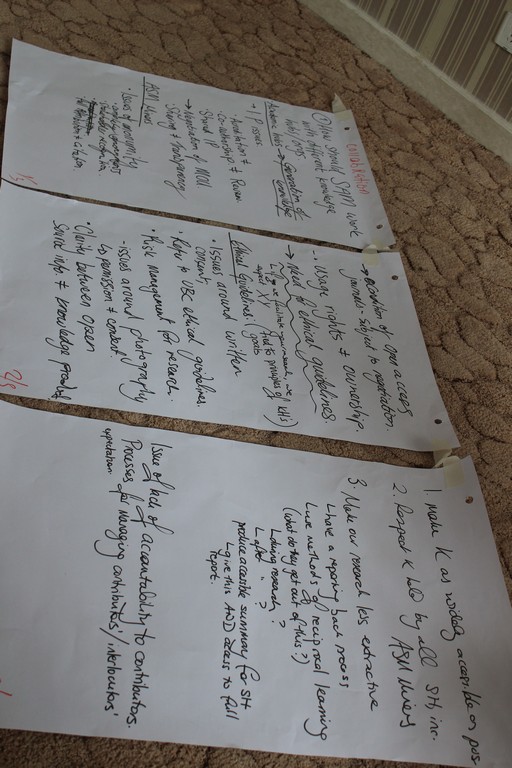 COLLABORATION
① How should SAM work
with different knowledge
hubs/orgs
Academic hubs → Generation of
knowledge
→ IP issues.
Annotation +
Co-authorship + Review
Shared IP
→ Negotiation of MOU
Sharing + transparency
ASM lives
• Issues of anonymity
for attribution + citation
1/3
→ escalation of open access
journals - subject to negotiation.
- Usage rights + ownership
→ need for ethical guidelines.
Ethical Guidelines (goals
• Issues around written
consent.
• How to use ethical guidelines
• Risk management for research.
• issues around photography
↳ permission + consent.
• Clarity between open
source info + knowledge product
2/3
1. Make K as widely accessible on pos
2. Respect K held by all SH, inc.
ASM Miners
3. Make our research less extractive
↳ have a reporting back process
↳ use methods of reciprocal learning
(what do they get out of this?)
↳ during research?
↳ after " ?
produce accessible summary for SH
↳ give this AND access to full
report.
Issue of lack of accountability to contributors.
Processes for managing contributors'/interlocutors'
expectation.